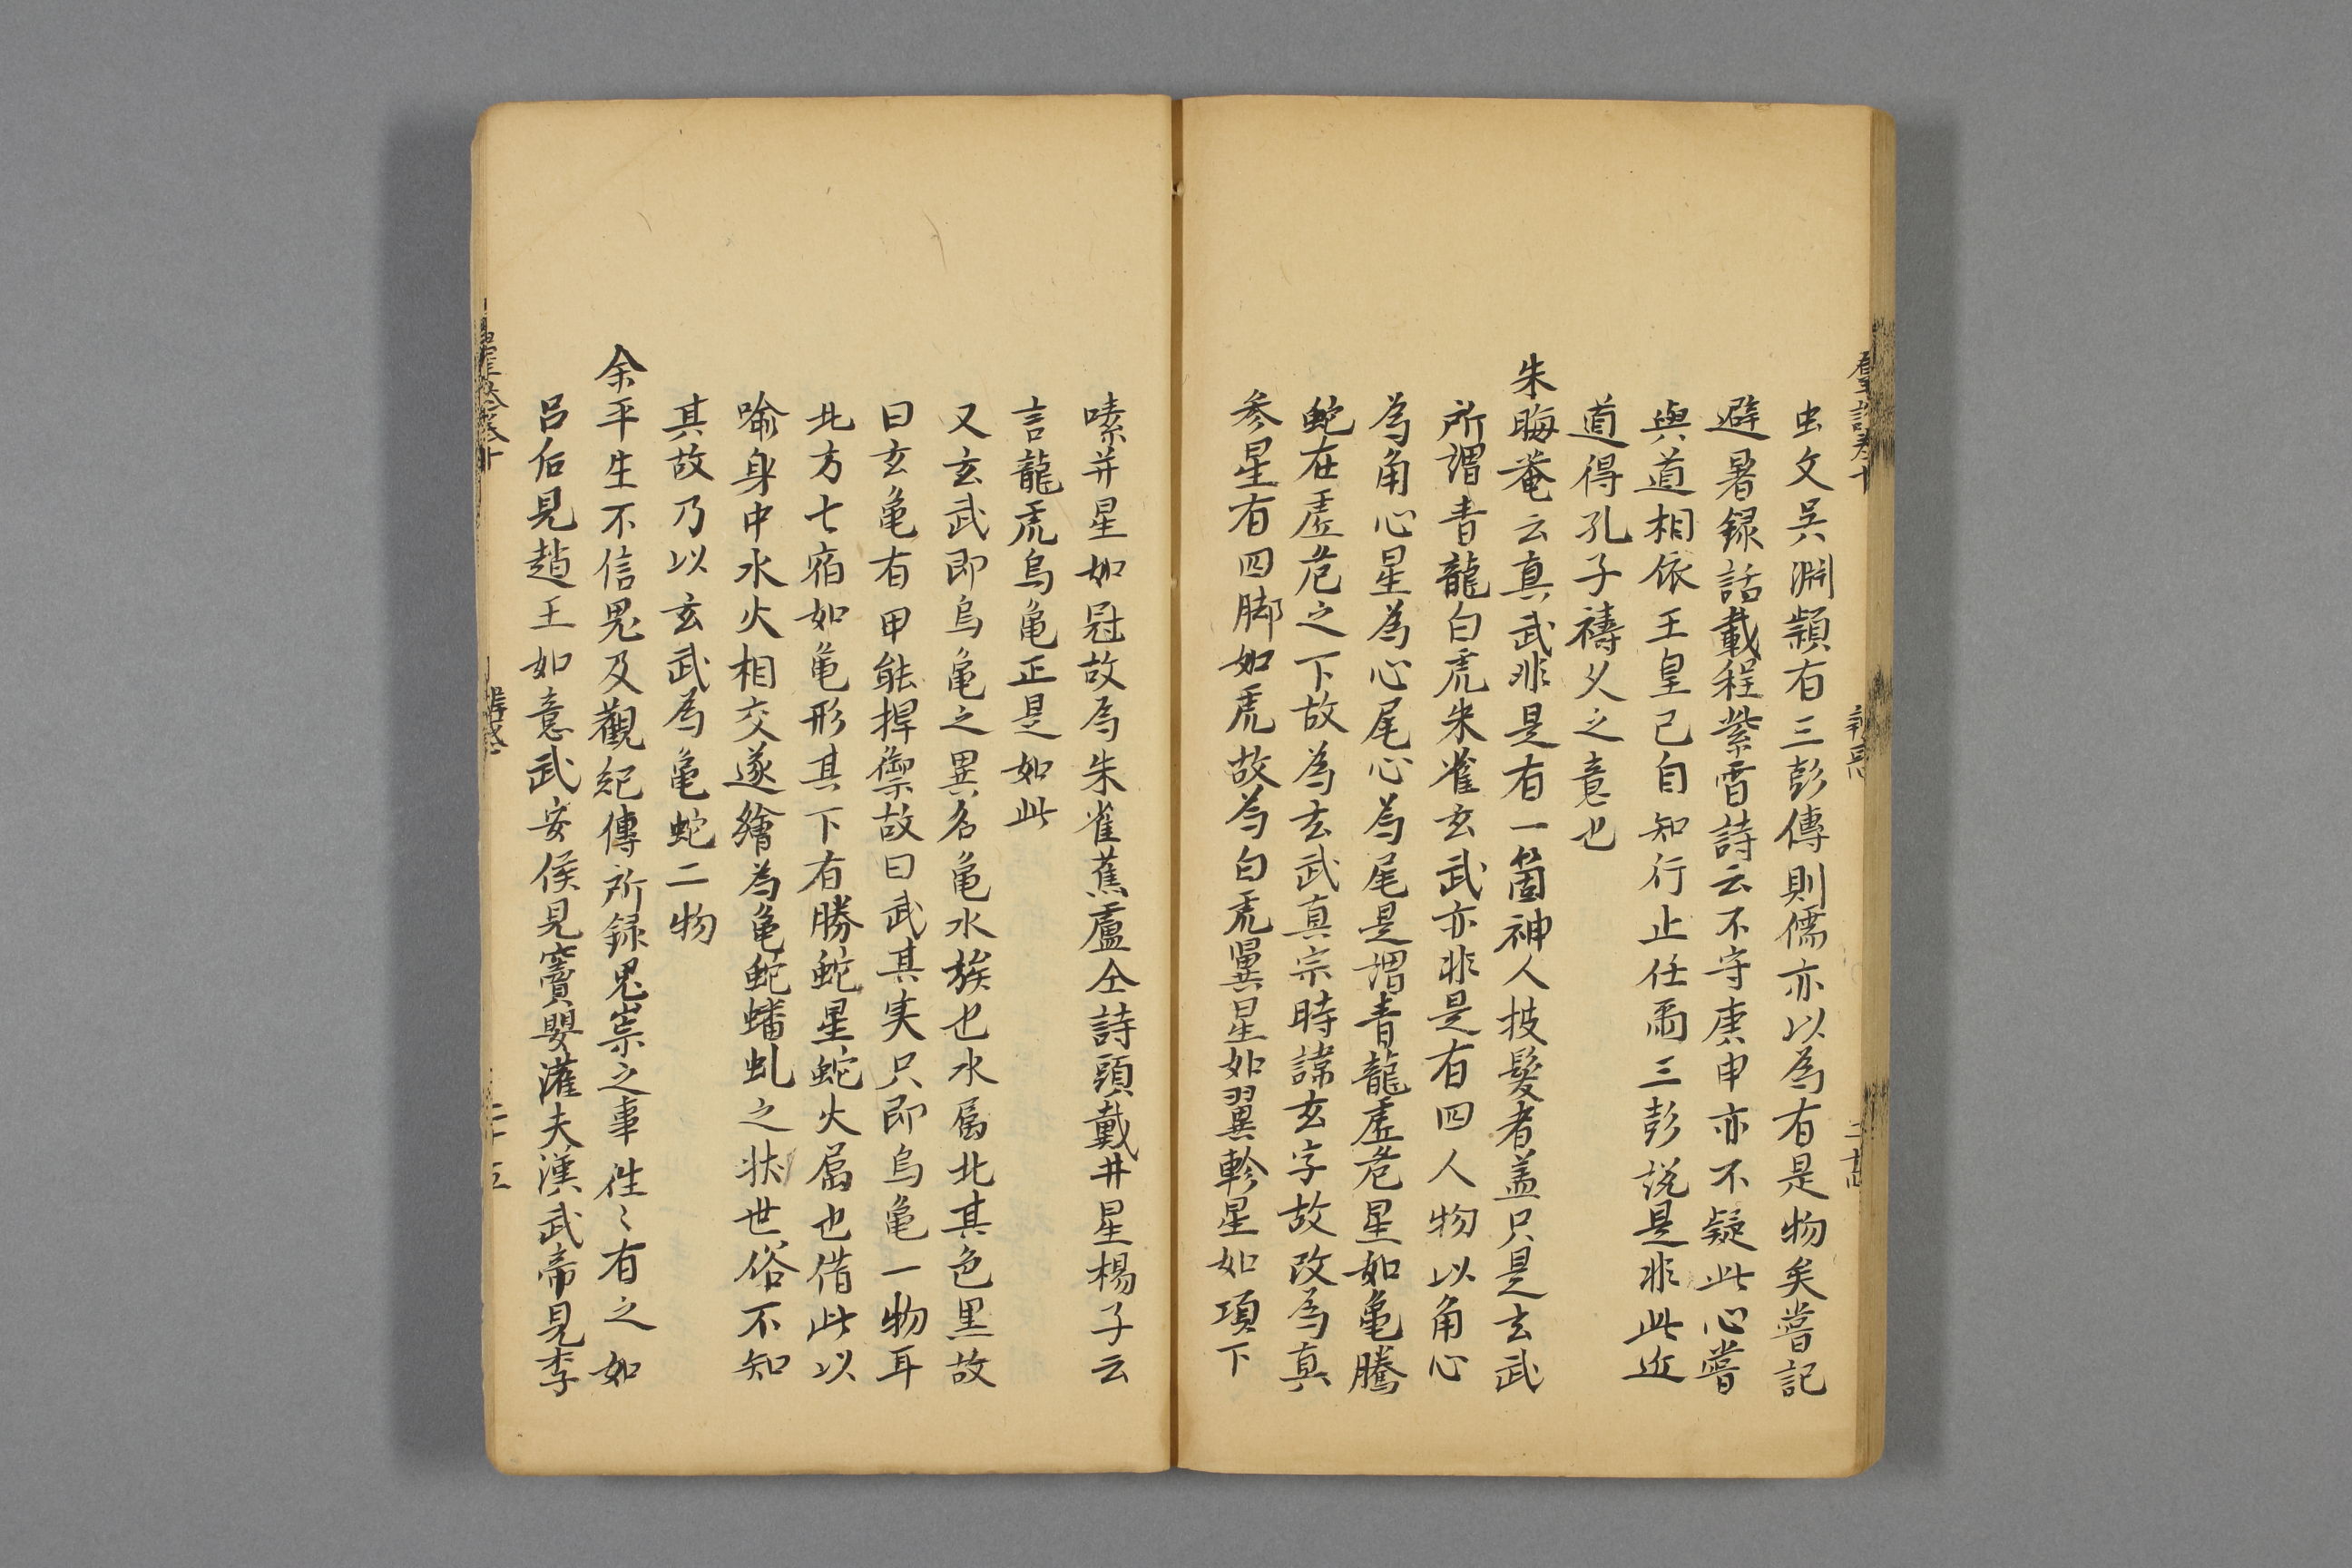 虫文吳淵頴有三彭傳則儒亦以為有是物矣嘗記
避暑録話載程紫霄詩云不守庚申亦不疑此心嘗
與道相依玉皇已自知行止任爾三彭説是非此近
道得孔子禱久之意也
朱晦菴云真武非是有一箇神人披髮者盖只是玄武
所謂青龍白虎朱雀玄武亦非是有四人物以角心
為角心星為心尾心為尾是謂青龍虛危星如亀騰
蛇在虛危之下故為玄武真宗時諱玄字故改為真
参星有四脚如虎故為白虎翼星如翼軫星如項下
嗉井星如冠故為朱雀蕉盧仝詩頭戴井星楊子云
言龍虎烏亀正是如此
又玄武即烏亀之異名亀水族也水属北其色黒故
曰玄亀有甲能捍禦故曰武其実只即烏亀一物耳
北方七宿如亀形其下有勝蛇星蛇火属也借此以
喻身中水火相交遂繪為亀蛇蟠虬之状世俗不知
其故乃以玄武為亀蛇二物
余平生不信鬼及觀紀傳所録鬼祟之事徃〻有之如
呂后見趙王如意武安侯見竇嬰灌夫漢武帝見李